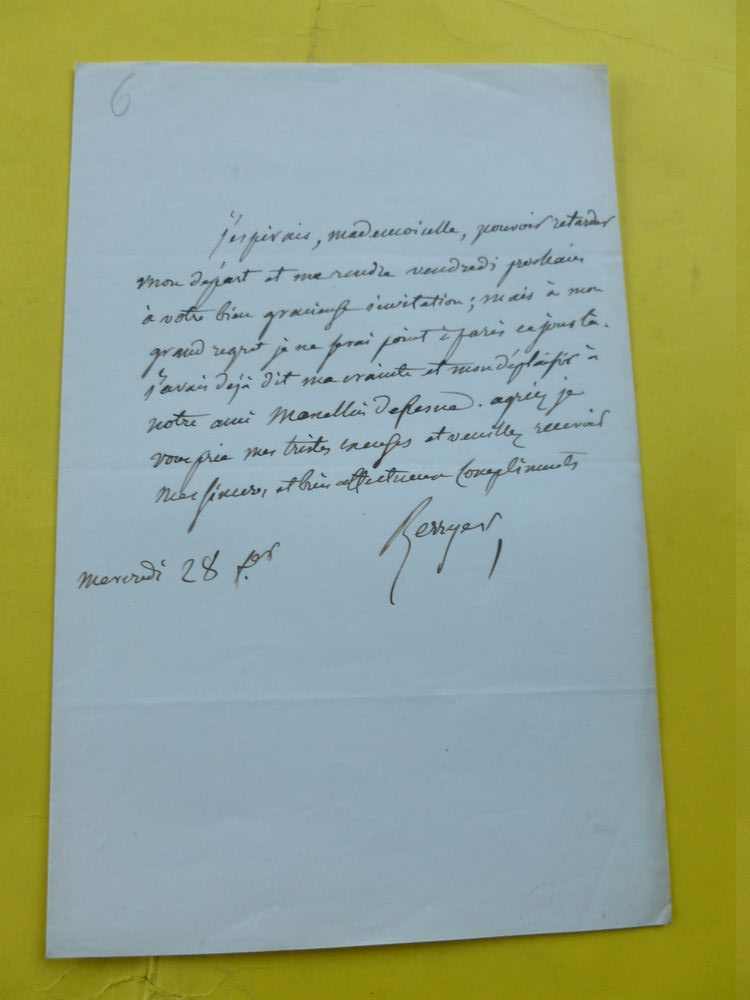 6
j'espérais, mademoiselle, pouvoir retarder
mon départ et me rendre vendredi prochain
à votre bien gracieuse invitation; mais à mon
grand regret je ne serai point à paris ce jour là.
j'avais déjà dit ma crainte et mon déplaisir à
notre ami Marcellus defresne. agréez je
vous prie mes tristes excuses et veuillez recevoir
mes sincères et bien affectueux compliments
Berryer
mercredi 28 f.er